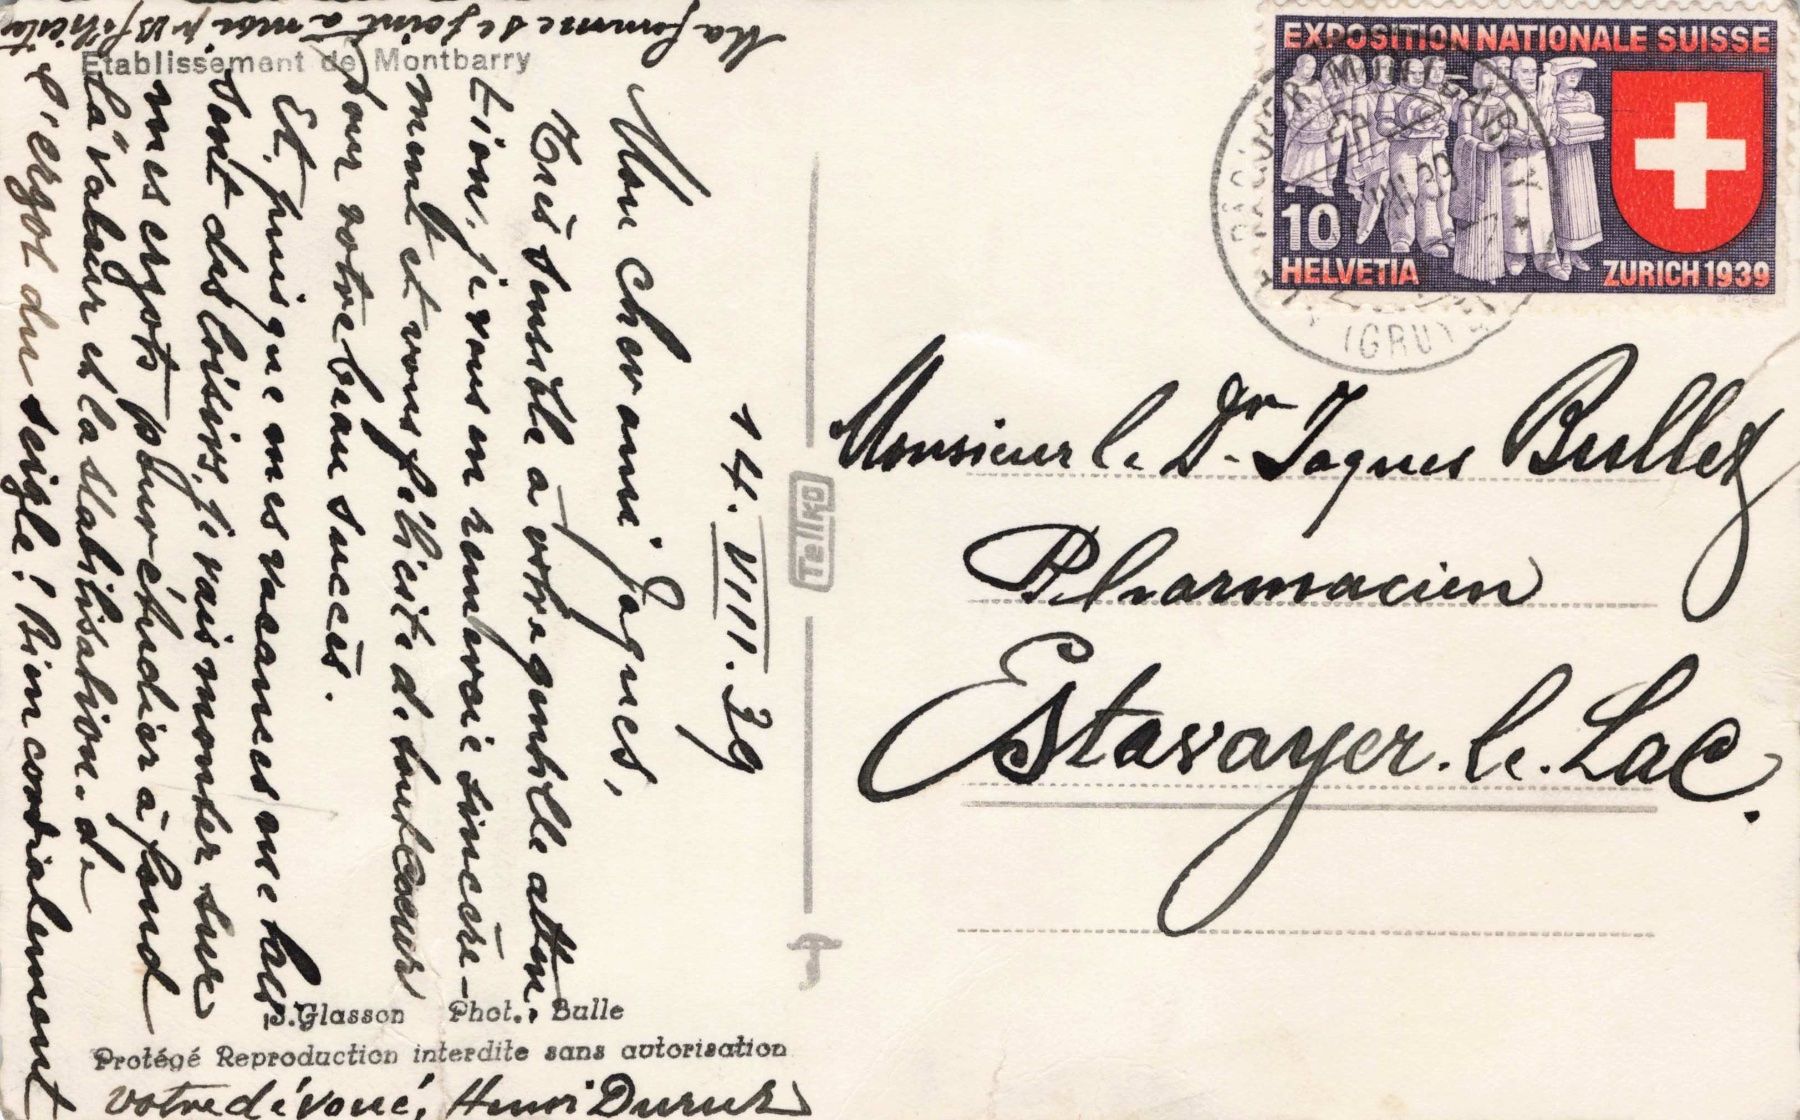 Ma femme se joint à moi pr vs féliciter
Etablissement de Montbarry
14.VIII.39
Mon cher ami Jaques,
Très sensible à votre gentille atten-
tion, je vous en remercie sincère-
ment et vous félicite de tout coeur
pour votre beau succès.
Et, puisque mes vacances me lais-
sent des loisirs, je vais monter sur
mes ergots pour étudier à fond
"la valeur et la stabilisation" de
l'ergot du seigle! Bien cordialement
votre dévoué, Henri
S.Glasson Phot. Bulle
Protégé Reproduction interdite sans autorisation
Tellko
EXPOSITION NATIONALE SUISSE
10
HELVETIA
ZURICH 1939
(GRUY
Monsieur le Dr Jaques Bullet
Pharmacien
Estavayer-le-Lac.